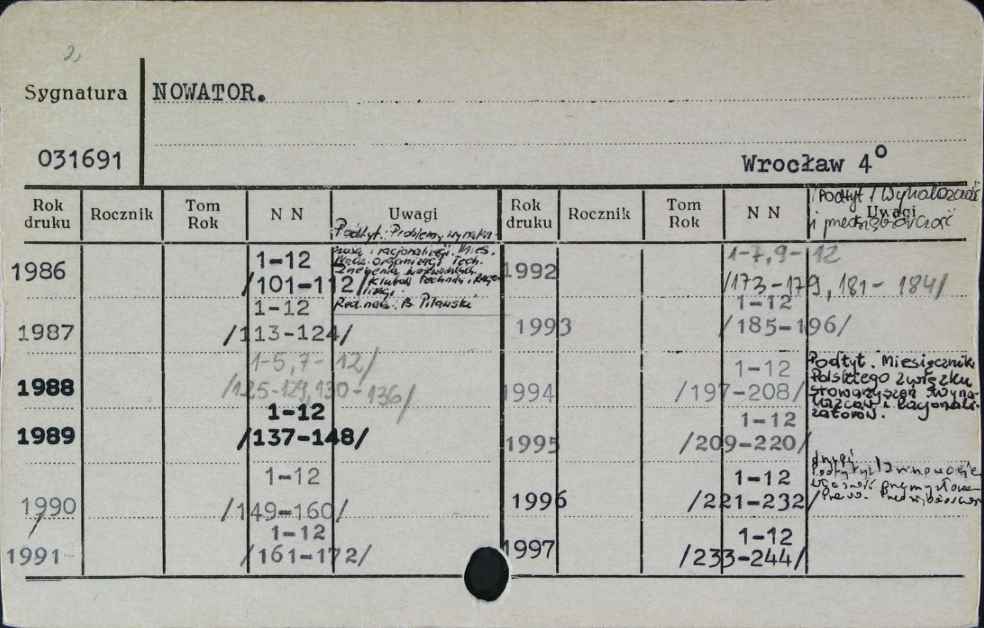 2,
Sygnatura NOWATOR.
031691 Wrocław 4°
Rok druku Rocznik Tom Rok N N Uwagi Rok druku Rocznik Tom Rok N N Uwagi
Podtyt. Wynalazczość
i przedsiębiorczość
Podtyt. Problemy wynalaz-
1986 1-12
/101-112/
czości i racjonalizacji. Mies.
organizacji Tech.
Klubów Techniki i Racjo-
Red. nacz. B. Pilawski
1987 1-12
/113-124/
1988 1-5, 7-12/
/125-129, 130-136/
1989 1-12
/137-148/
1990 1-12
/149-160/
1991 1-12
/161-172/
1992 1-7, 9-12
/173-179, 181-184/
1993 1-12
/185-196/
1994 1-12
/197-208/
Podtyt. Miesięcznik
Polskiego Związku
Stowarzyszeń Wyna-
lazców i Racjonali-
zatorów.
1995 1-12
/209-220/
1996 1-12
/221-232/
drugi
podtytuł: Innowacje
własność przemysłowa
1997 1-12
/233-244/